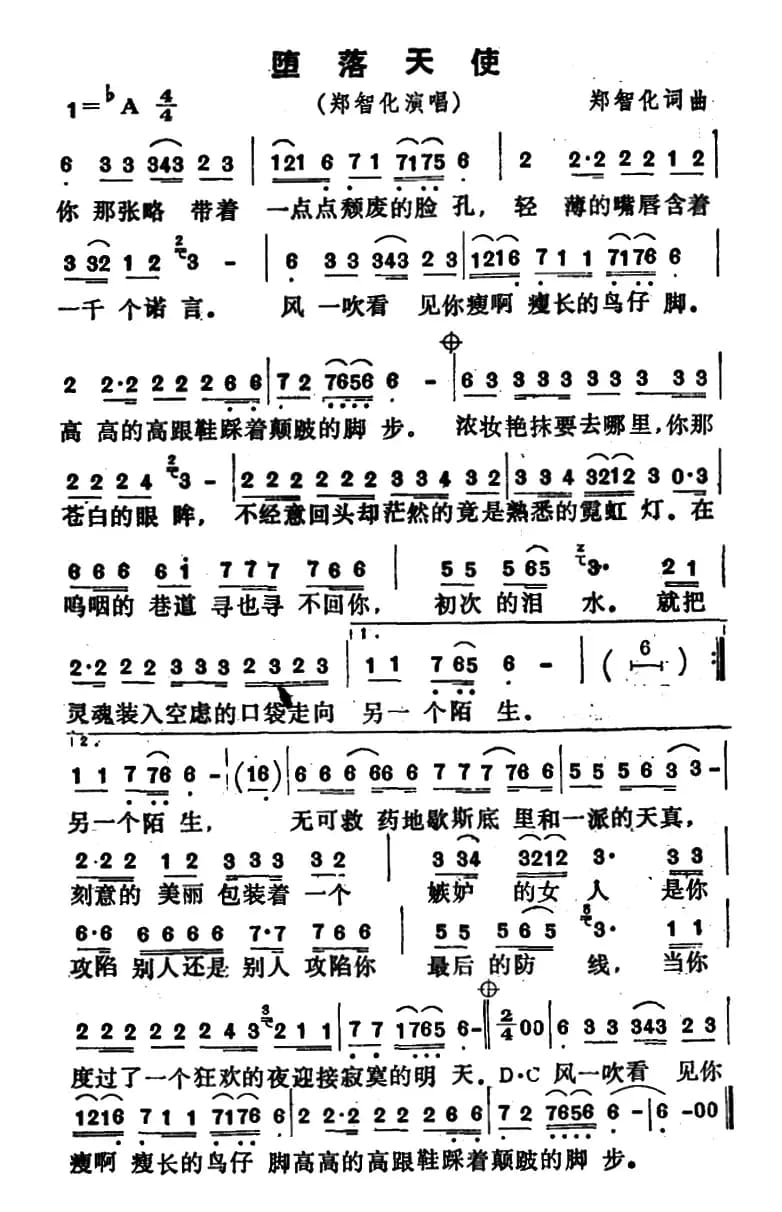 堕落天使
1=♭A 4/4 (郑智化演唱) 郑智化词曲
6 3 3 343 2 3 | 121 6 7 1 7175 6 | 2 2·2 2 2 1 2 |
你 那张略 带着 一点点颓废的脸 孔， 轻 薄的嘴唇含着
3 32 1 2 3 - | 6 3 3 343 2 3 | 1216 7 1 1 7176 6 |
一千 个诺 言。 风 一吹看 见你瘦啊 瘦长的鸟仔 脚。
2 2·2 2 2 2 6 6 | 7 2 7656 6 - | 6 3 3 3 3 3 3 3 3 3 |
高 高的高跟鞋踩着颠跛的脚 步。 浓妆艳抹要去哪里，你那
2 2 2 4 2 3 - | 2 2 2 2 2 2 2 3 3 4 3 2 | 3 3 4 3212 3 0·3 |
苍白的眼 眸， 不经意回头却茫然的竟是熟悉的霓虹 灯。在
6 6 6 6 i 7 7 7 7 6 6 | 5 5 5 65 2 3· 2 1 |
呜咽的 巷道 寻也寻 不回你， 初次 的泪 水。 就把
2·2 2 2 3 3 3 2 3 2 3 | 1. 1 1 7 65 6 - | ( 6 ) :||
灵魂装入空虑的口袋走向 另一 个陌 生。
2. 1 1 7 76 6 - (16) | 6 6 6 66 6 7 7 7 76 6 | 5 5 5 6 3 3 - |
另一个陌 生， 无可救 药地歇斯底 里和一派的天真，
2·2 2 1 2 3 3 3 3 2 | 3 34 3212 3· 3 3 |
刻意的 美丽 包装着 一个 嫉妒 的女 人 是你
6·6 6 6 6 6 7·7 7 6 6 | 5 5 5 65 3· 1 1 |
攻陷 别人还是 别人 攻陷你 最后 的防 线， 当你
2 2 2 2 2 2 2 4 3 3 2 1 1 | 7 7 1765 6 - || 2/4 0 0 | 6 3 3 343 2 3 |
度过了一个狂欢的夜迎接寂寞的明 天。D·C 风一吹看 见你
1216 7 1 1 7176 6 | 2 2·2 2 2 2 6 6 | 7 2 7656 6 - | 6 - 0 0 ||
瘦啊 瘦长的鸟仔 脚高高的高跟鞋踩着颠跛的脚 步。